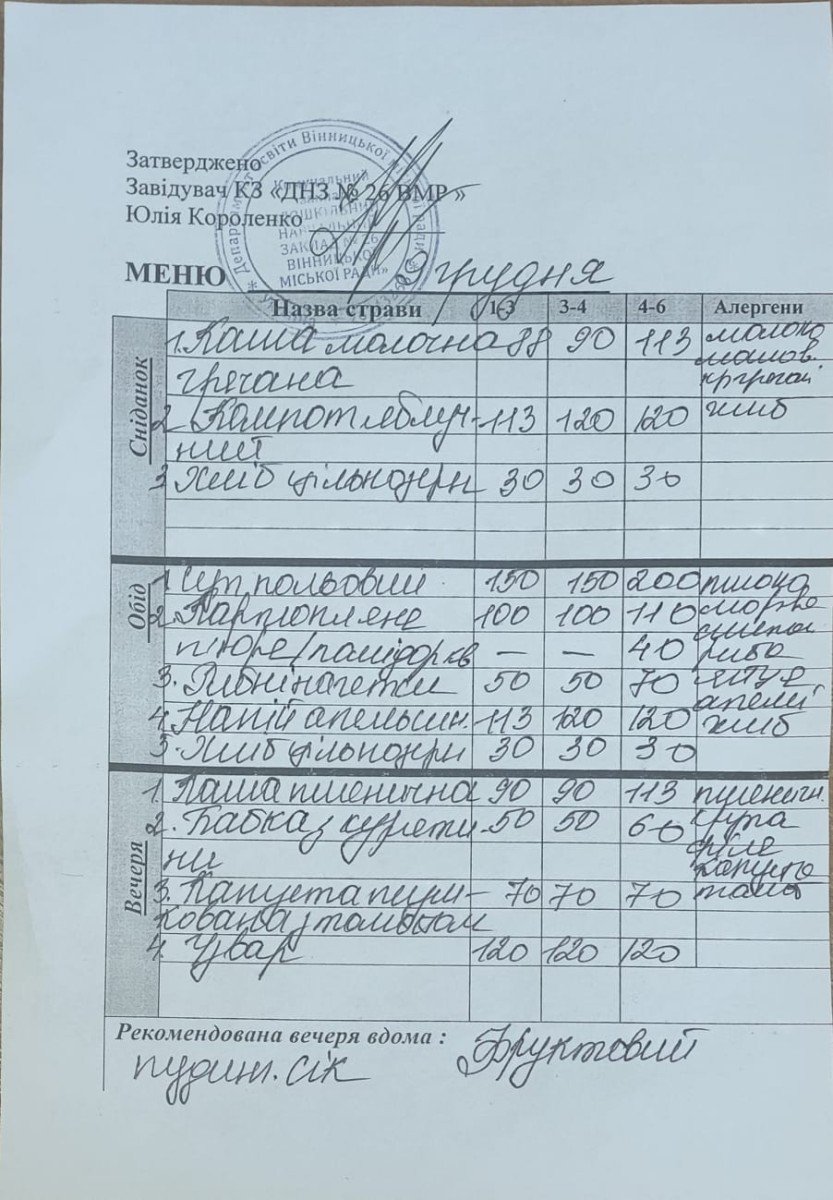 Затверджено
Завідувач КЗ «ДНЗ № 26 ВМР»
Юлія Короленко
Комунальний заклад
ДОШКІЛЬНИЙ
НАВЧАЛЬНИЙ
ЗАКЛАД № 26
ВІННИЦЬКОЇ
МІСЬКОЇ РАДИ»
МЕНЮ грудня
Назва страви 1-3 3-4 4-6 Алергени
Сніданок
1. Каша молочна 88 90 113 молоко
гречана
2. Компот яблуч- 113 120 120 хліб
ний
3. Хліб цільнозерн 30 30 30
Обід
1. Суп польовий 150 150 200 пшоно
2. Картопляне 100 100 110 морква
пюре/помідор св — — 40 риба
3. Рибні нагетси 50 50 70 яйце
4. Напій апельсин. 113 120 120 хліб
5. Хліб цільнозерн 30 30 30
Вечеря
1. Каша пшенична 90 90 113 пшеничн.
2. Бабка з куряти- 50 50 60 крупа
філе
ни капуста
3. Капуста туш- 70 70 70 томат
кована з томатом
4. Узвар 120 120 120
Рекомендована вечеря вдома : Фруктовий
пудинг. сік